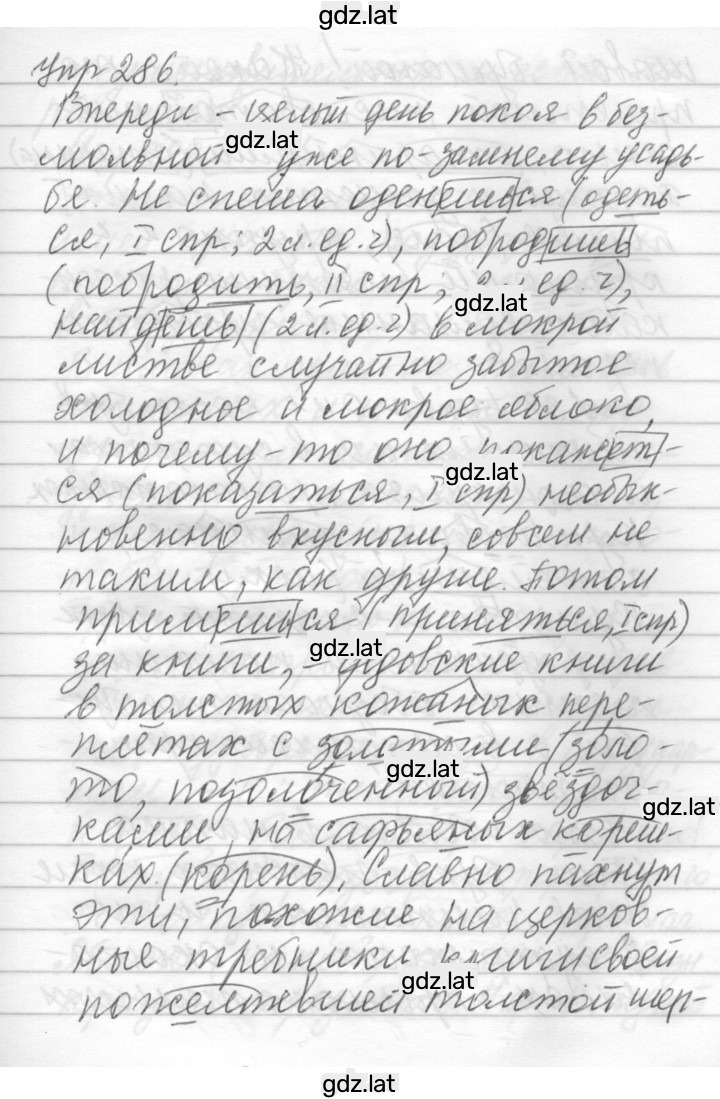 gdz.lat
Упр 286.
Впереди – целый день покоя в без-
gdz.lat
мольной уже по-зимнему усадь-
бе. Не спеша оденешься (одеть-
ся, I спр; 2л. ед. ч), побродишь
(побродить, II спр, ед. ч),
gdz.lat
найдёшь (2 л. ед. ч) в мокрой
листве случайно забытое
холодное и мокрое яблоко,
и почему-то оно покажет-
gdz.lat
ся (показаться, I спр) необык-
новенно вкусным, совсем не
таким, как другие. Потом
примешься (приняться, I спр)
gdz.lat
за книги, – дедовские книги
в толстых кожаных пере-
плётах с золотыми (золо-
gdz.lat
то, позолоченный) звёздоч-
gdz.lat
ками на сафьяных кореш-
ках. (корень). Славно пахнут
эти, похожие на церков-
ные требники книги своей
gdz.lat
пожелтевшей толстой шер-
gdz.lat